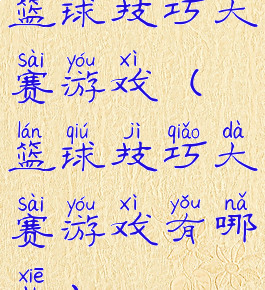 篮球技巧大
sài yóu xì
赛游戏（
lán qiú jì qiǎo dà
篮球技巧大
sài yóu xì yǒu nǎ
赛游戏有哪
xiē